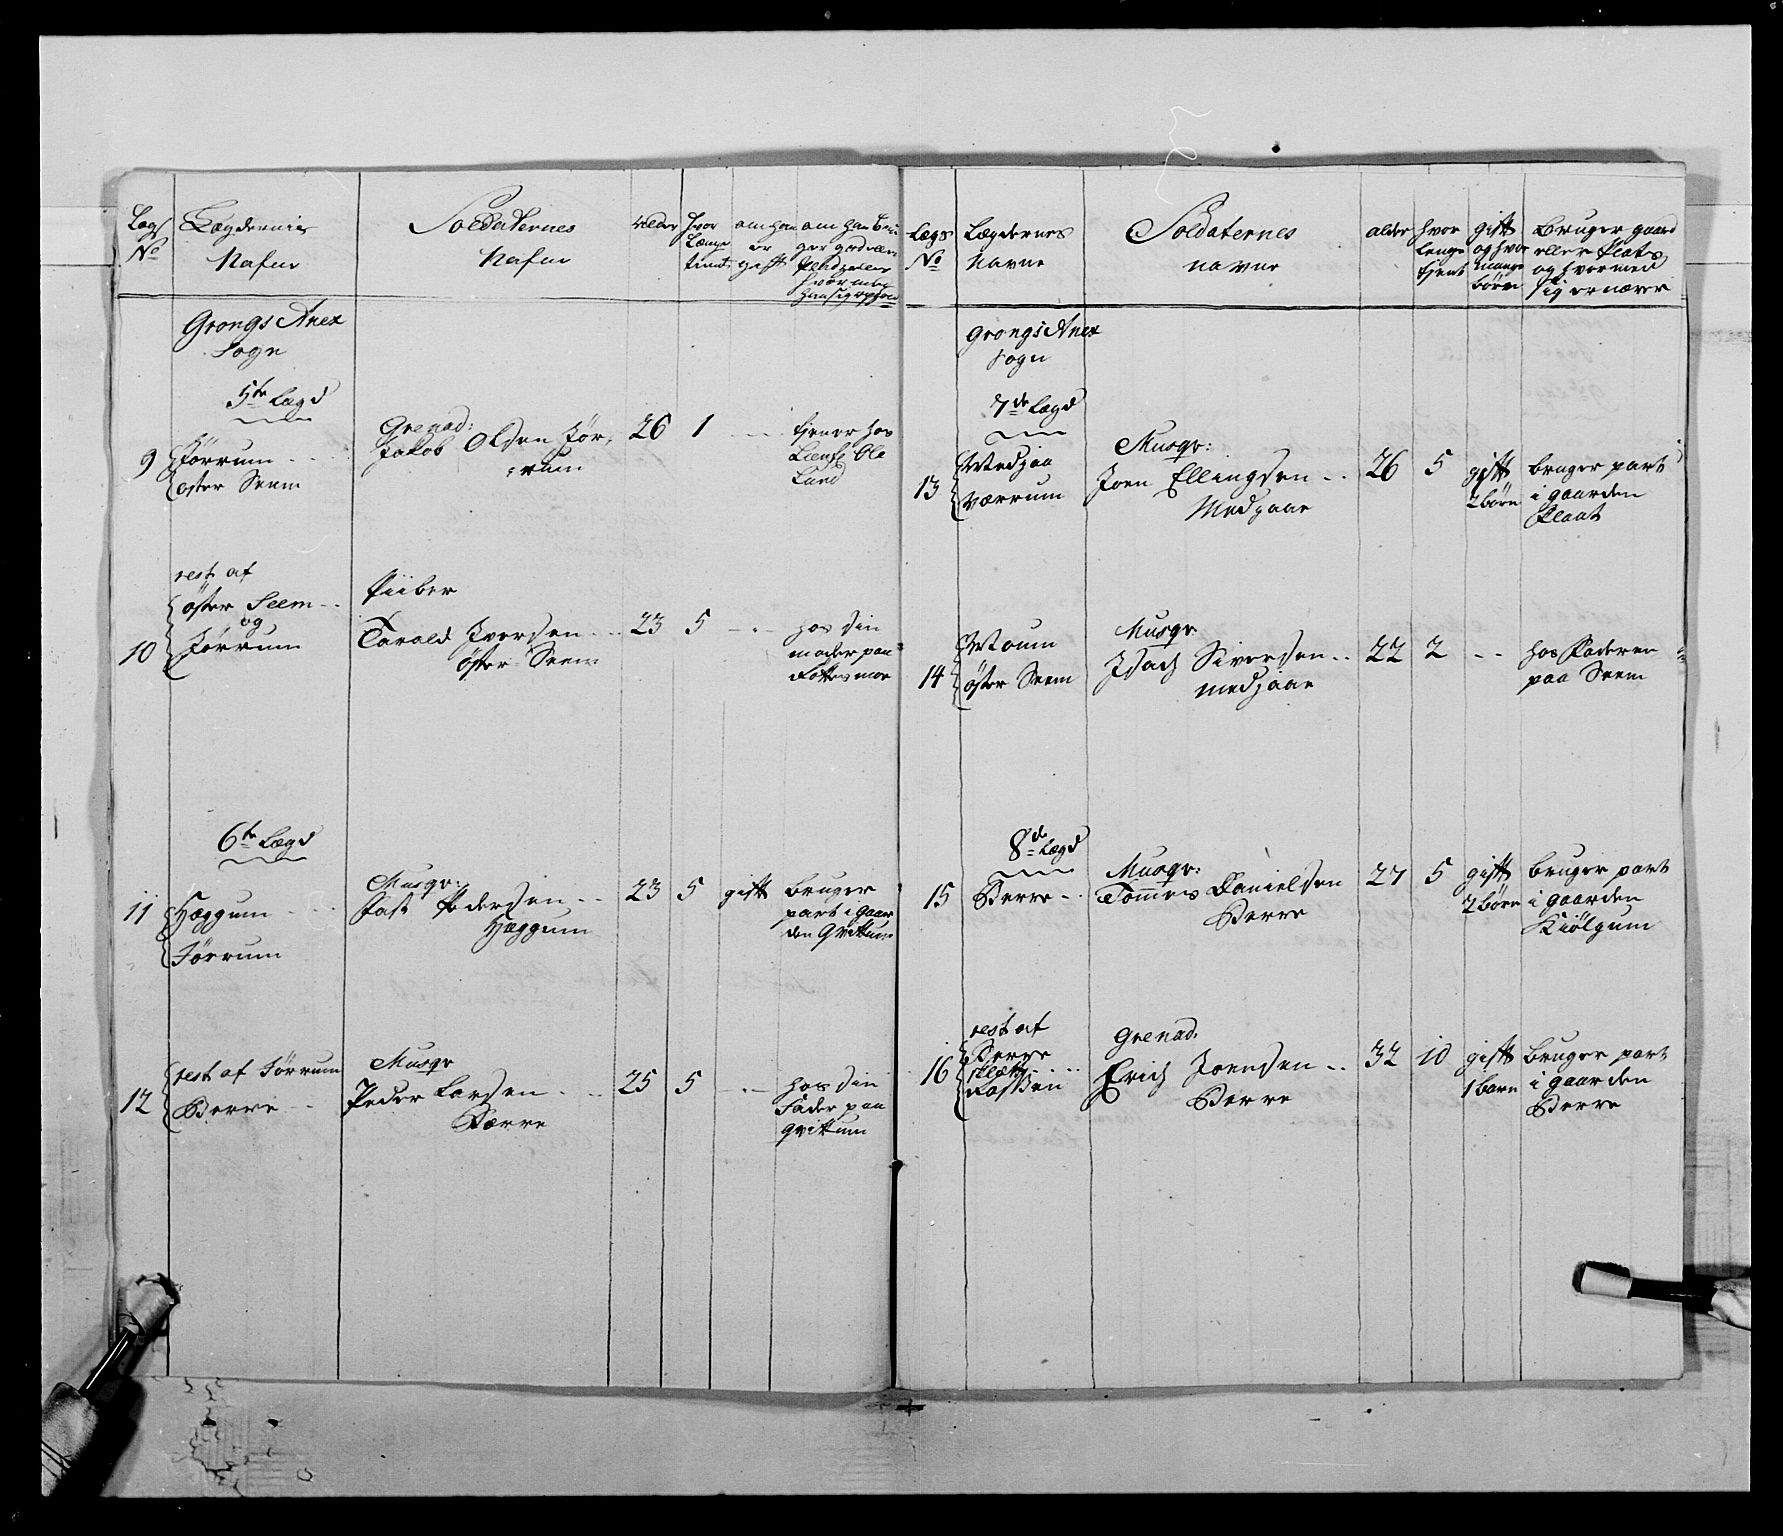 Lægs
No
Lægdernis
Nafne
Soldaternes
Nafne
alder
hvor
Længe
tient
om han
er
gift
om han bru
ger gord eller
Pladz eller
hvor med
han sig opholder
Grongs Anex
Sogn
5te Lægd
9
Førrum
øster Seem
Grenad:
Jakob Olsen Før,
rum
26
1
tiener hos
Lænf: Ole
Lund
rest af
10
øster Seem
og
Førrum
Piiber
Tarald Iversen
øster Seem
23
5
hos sin
moder paa
6te Lægd
11
Hæggum
Førrum
Musqr:
Pedersen
Hæggum
23
5
gift
bruger
part i gaar
den Qvittum
12
rest af Førrum
Berre
Musqr
Peder Larsen
Bærre
25
5
hos sin
Fader paa
Qvittum
Lægs
No
Lægdernes
Navne
Soldaternes
navne
alder
hvor
lenge
tient
gift
og hvor
mange
børn
Bruger gaard
eller Plats
og hvormed
sig ernærer
Grongs Anex
sogn
7de Lægd
13
Medjaa
Værrum
Musqr:
Joen Ellingsen
Medjaae
26
5
gift
2 børn
bruger part
i gaarden
Flaat
14
Moum
øster Seem
Musqr
Isach Siversen
medjaae
22
2
hos Faderen
paa Seem
8de Lægd
15
Berre
Musqr:
Tommes Danielsen
Berre
27
5
gift
2 børn
bruger part
i gaarden
Kiølgum
16
rest af
Berre
Grenad:
Erich Joensen
Berre
32
10
gift
1 barn
bruger part
i gaarden
Berre